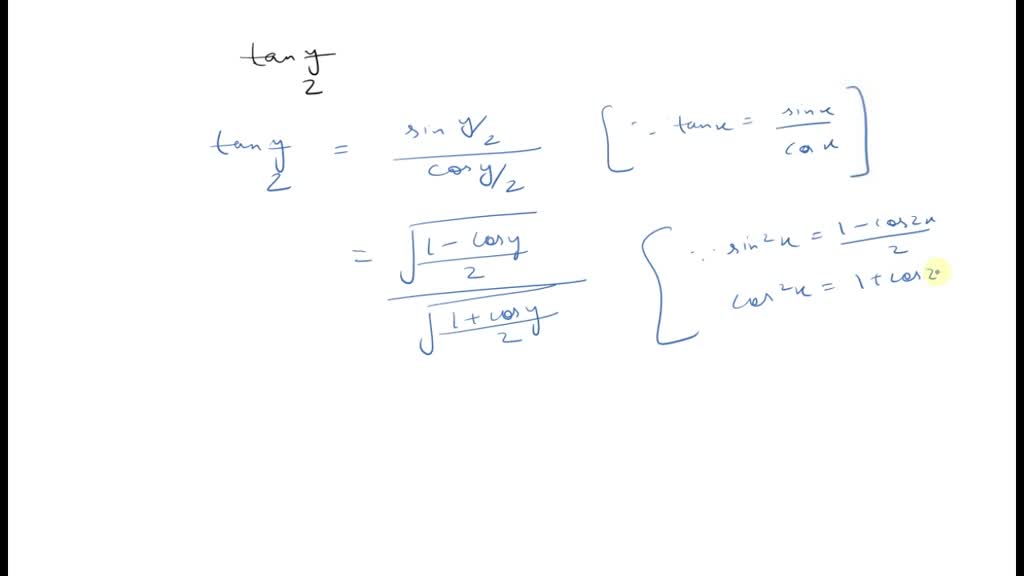 tan y/2
tan y/2 = sin y/2 / cos y/2 [∵ tanx = sinx / cos x]
= √(1 - cosy / 2) / √(1 + cosy / 2) [∵ sin²x = 1 - cos2x / 2
cos²x = 1 + cos2